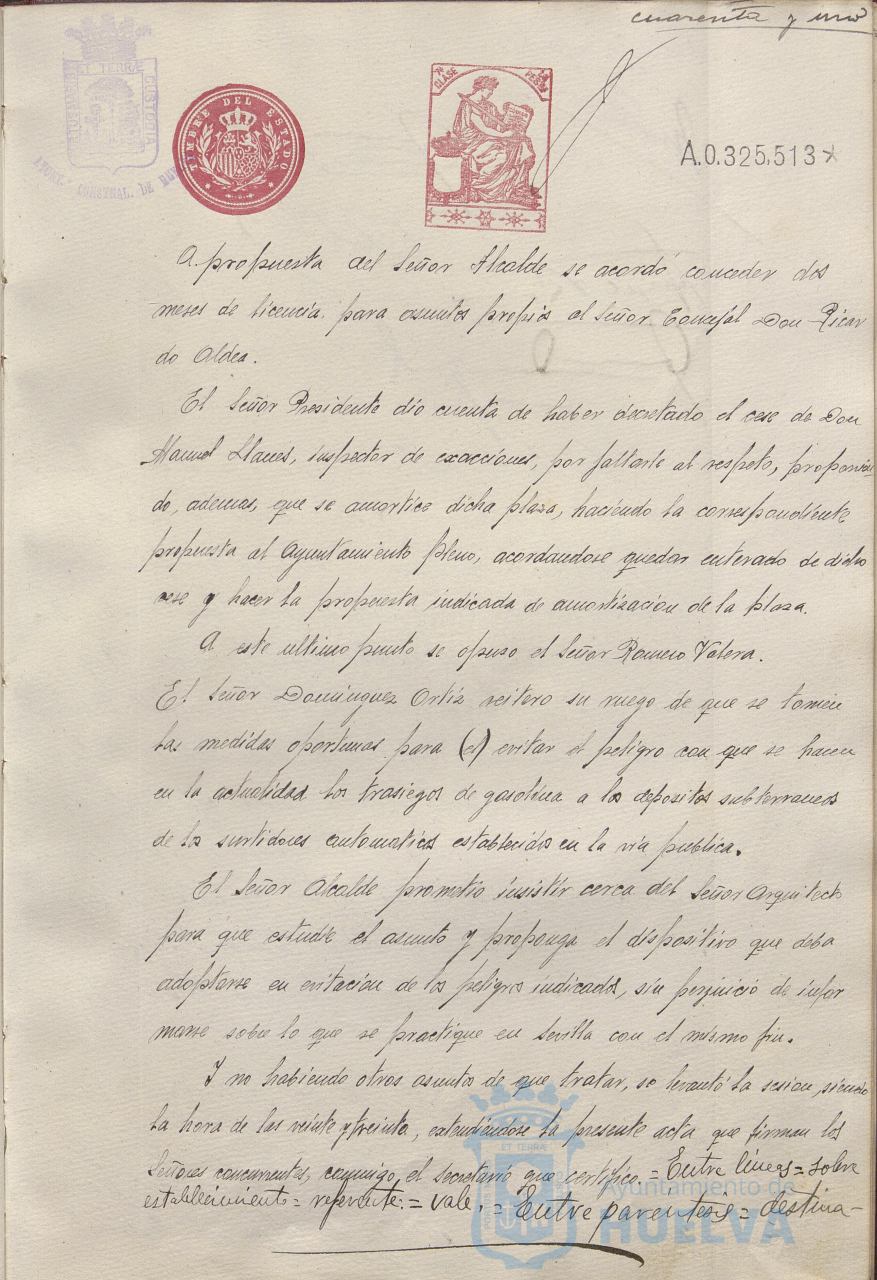 cuarenta y uno
ET TERRÆ
CUSTODIA
TIMBRE DEL ESTADO
7ª CLASE
PESETA
A.0.325,513
A propuesta del Señor Alcalde se acordó conceder dos
meses de licencia, para asuntos propios al Señor Concejal Don Ricar
do Aldea.
El Señor Presidente dio cuenta de haber decretado el cese de Don
Manuel Llanes, inspector de exacciones, por faltarle al respeto, proponien
do, ademas, que se amortice dicha plaza, haciendo la correspondiente
propuesta al Ayuntamiento Pleno, acordandose quedar enterado de dicho
cese y hacer la propuesta indicada de amortización de la plaza.
A este último punto se opuso el Señor Romero Valera.
El Señor Domínguez Ortiz reitero su ruego de que se tomen
las medidas oportunas para (el) evitar el peligro con que se hacen
en la actualidad los trasiegos de gasolina a los depositos subterraneos
de los surtidores automaticos establecidos en la via publica.
El Señor Alcalde prometió insistir cerca del Señor Arquitecto
para que estudie el asunto y proponga el dispositivo que deba
adoptarse en evitacion de los peligros indicados, sin perjuicio de infor
marse sobre lo que se practique en Sevilla con el mismo fin.
Y no habiendo otros asuntos de que tratar, se levantó la sesion, siendo
la hora de las veinte y treinta, extendiéndose la presente acta que firman los
Señores concurrentes, conmigo, el secretario que certifico. = Entre líneas = sobre
establecimiento = referente: = vale. = Entre paréntesis = destina-
ET TERRÆ
Ayuntamiento de
HUELVA